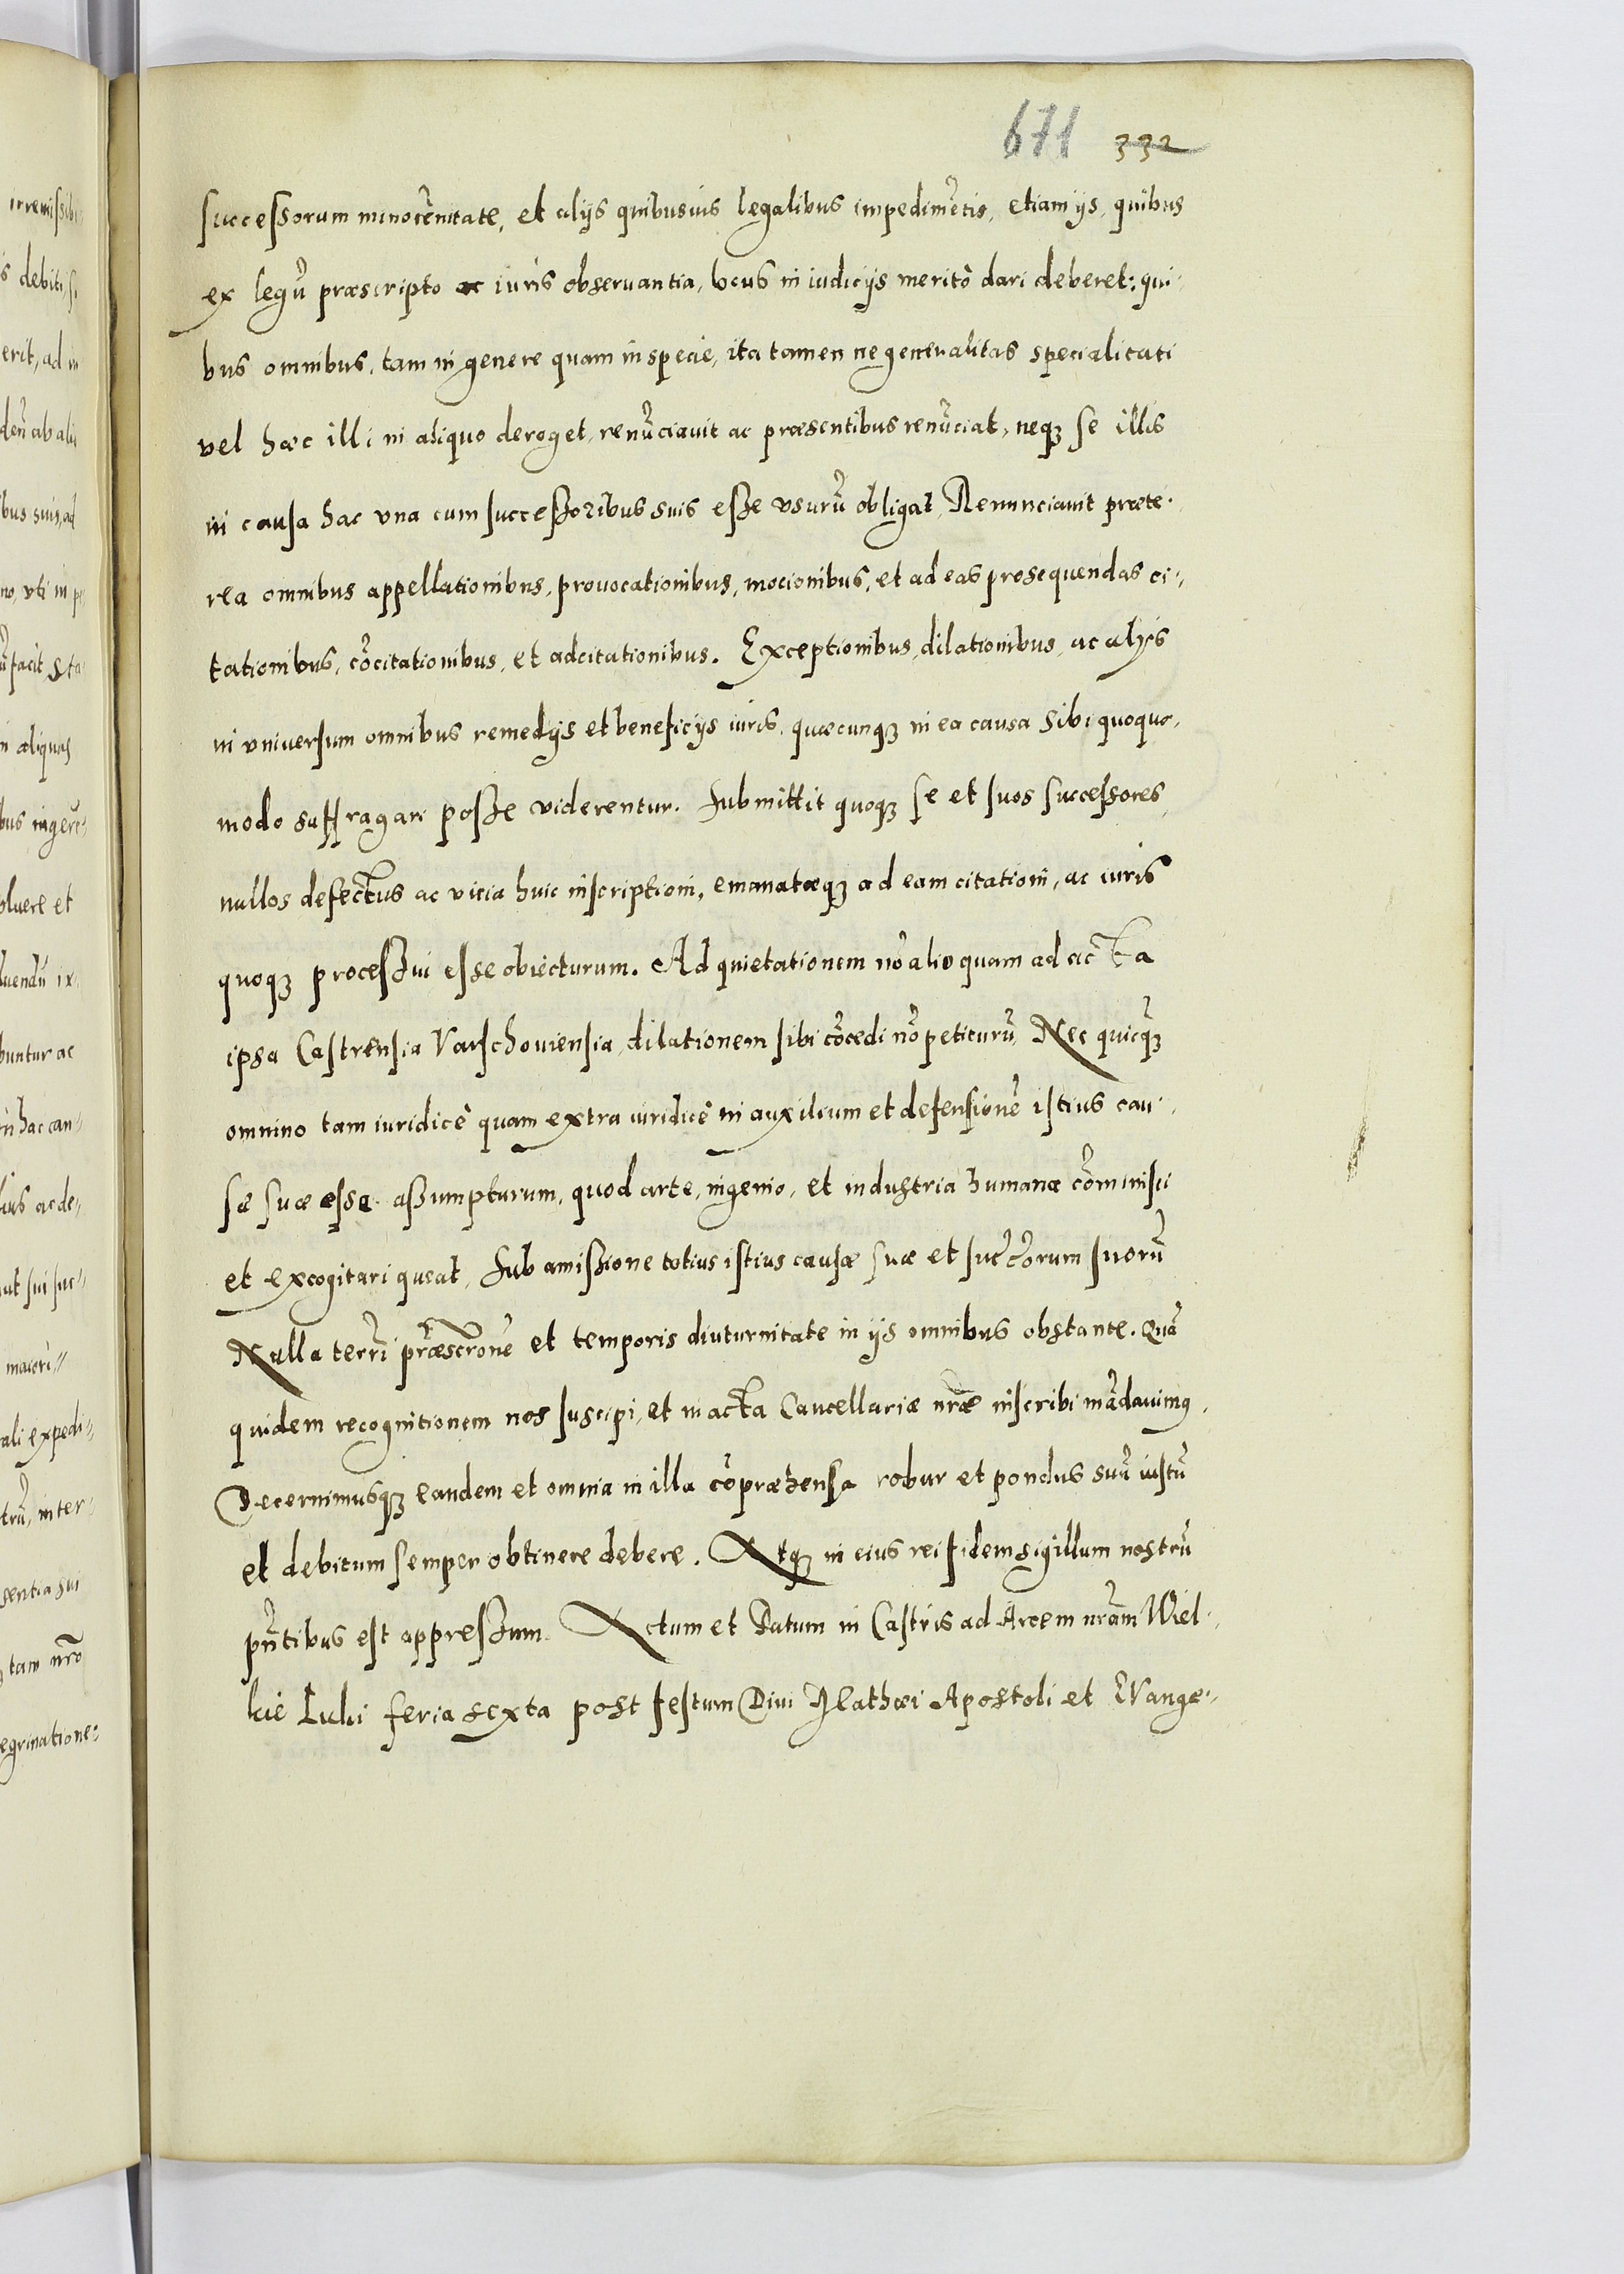 671 332
successorum minorēnitate, et alijs quibusuis legalibus impedimētis, etiam ijs, quibus
ex legū præscripto ac iuris obseruantia, locus in iudicijs meritò dari deberet: qui-
bus omnibus, tam in genere quam in specie, ita tamen ne generalitas specialitati
vel hæc illi in aliquo deroget, renūciauit ac præsentibus renūciat, neqȝ se illis
in causa hac vna cum successoribus suis esse vsurū obligat, Renunciauit præte-
rea omnibus appellationibus, prouocationibus, mocionibus, et ad eas prosequendas ci-
tationibus, cōcitationibus, et adcitationibus. Exceptionibus, dilationibus, ac alijs
in vniuersum omnibus remedijs et beneficijs iuris, quæcunqȝ in ea causa sibi quoquo-
modo suffragari posse viderentur. Submittit quoqȝ se et suos successores,
nullos defectus ac vicia huic inscriptioni, emanatæqȝ ad eam citationi, ac iuris
quoqȝ processui esse obiecturum. Ad quietationem nō alio quam ad acta
ipsa Castrensia Varschouiensia, dilationem sibi cōcedi nō peticurū, Nec quicqȝ
omnino tam iuridicè quam extra iuridicè in auxilium et defensionē istius cau-
sæ suæ esse assumpturum, quod arte, ingenio, et industria humana cōminisci
et excogitari queat, Sub amissione totius istius causæ suæ et succ̄orum suorū
Nulla terrī præscrōne et temporis diuturnitate in ijs omnibus obstante. Quā
quidem recognitionem nos suscipi, et in acta Cancellariæ nr̄æ inscribi mādauimus.
Decernimusqȝ eandem et omnia in illa cōpræhensa robur et pondus suū iustū
et debitum semper obtinere debere. Atqȝ in eius rei fidem sigillum nostrū
pn̄tibus est appressum. Actum et Datum in Castris ad Arcem nr̄am Wiel-
kie Luki feria sexta post festum Diui Mathæi Apostoli et Evange-